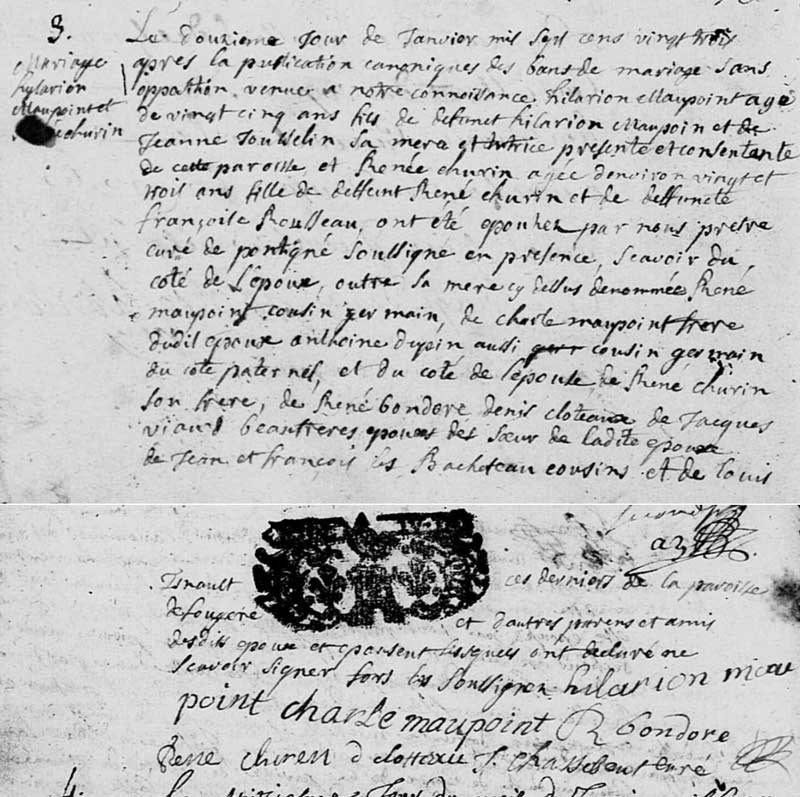 3.
Mariage
hylarion
Maupoint et
churin
Le douzieme Jour de Janvier mis sept cens vingt trois
apres la publication canoniques des bans de mariage sans
oppothon venuer a notre connoissance hilarion Maupoint agé
de vingt cinq ans fils de defunct hilarion Maupoin et de
Jeanne Jousselin sa mere et tutrice presente et consentante
de cette paroisse et Renée churin agée denviron vingt et
trois ans fille de deffunt René churin et de deffuncte
françoise Rousseau, ont été epouhez par nous prestre
curé de pontigné soussigne en presence, scavoir du
coté de Lepoux, outre sa mere cy dessus denommée René
maupoint cousin germain, de charle maupoint frere
dudit epoux anthoine dupin aussi cousin germain
du coté paternel, et du coté de lepouse de René churin
son frere, de René bondore denis cloteaux de Jacques
viaud beaufreres epouxs des sœur de ladite epouse
de Jean et françois les Bacheteau cousins et de louis
Isnault ces derniers de la paroisse
de fougere et d'autres parens et amis
desdits epoux et epousent lesquels ont declaré ne
scavoir signer fors les soussignez hilarion mau
point charle maupoint R bondore
Rene churen d clotteau J. chassebeuf curé
4.